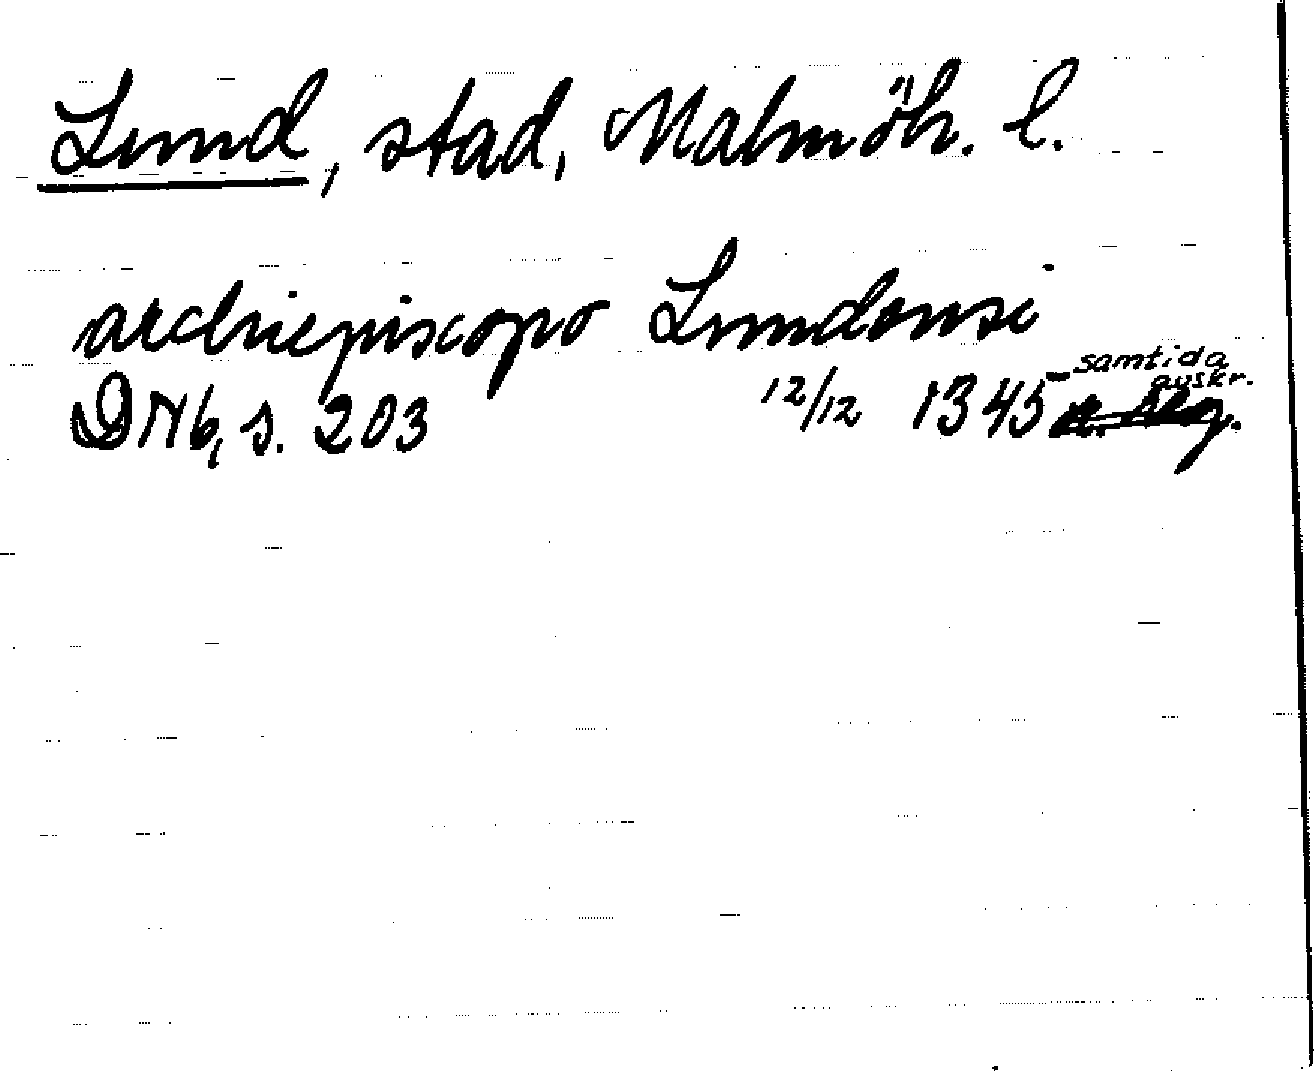 Lund, stad, Malmöh. l.
archiepiscopo Lundensi
DN 6, s. 203 12/12 1345 samtida avskr.